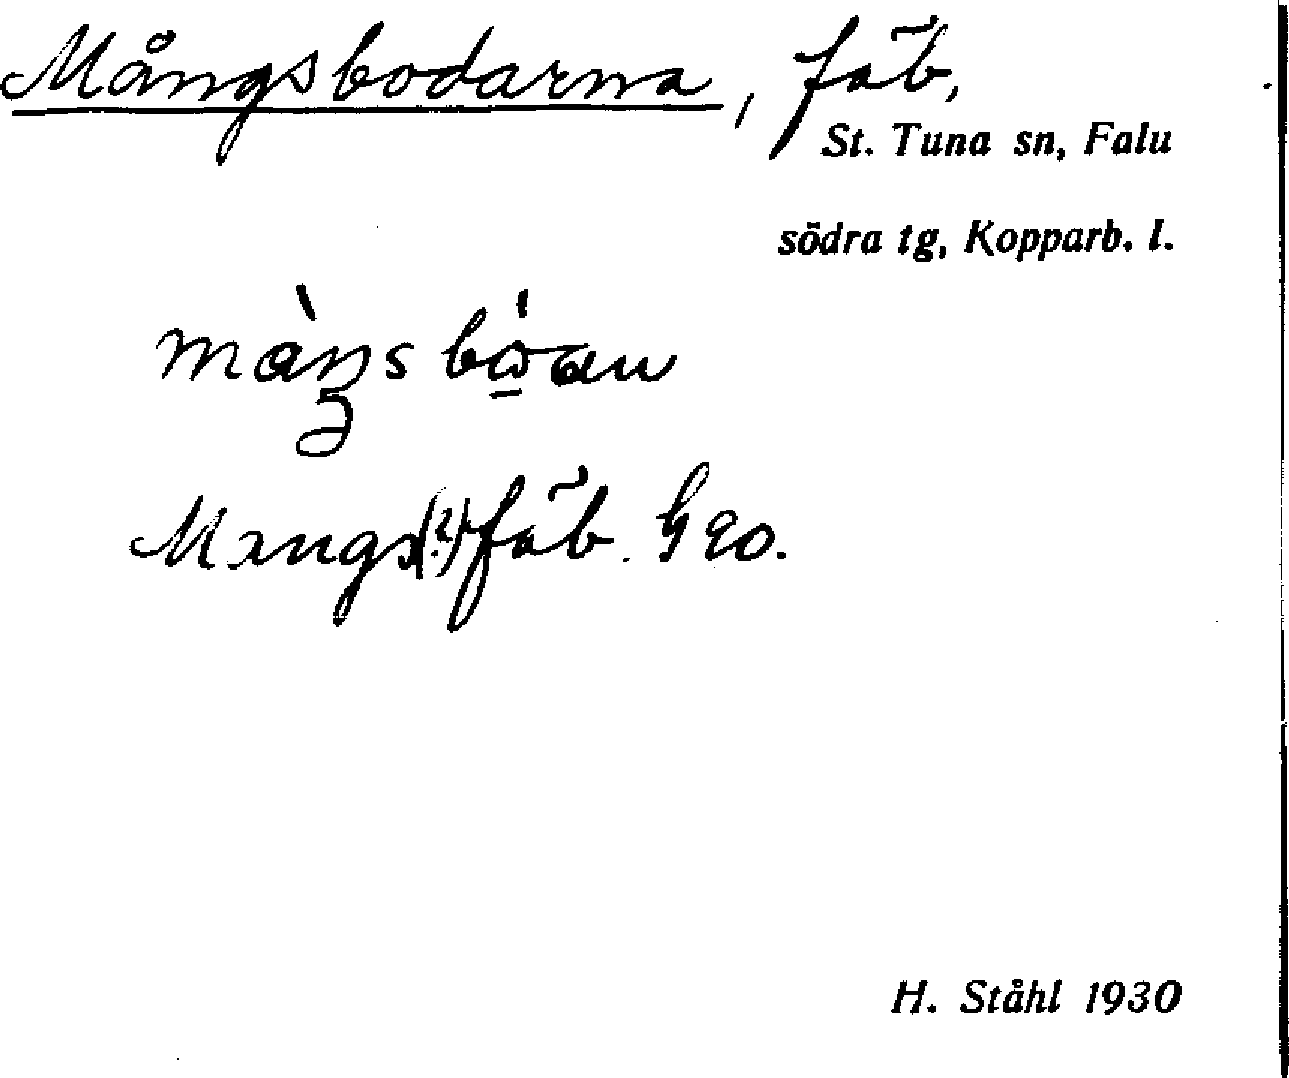 Mångsbodarna, fäb,
St. Tuna sn, Falu
södra tg, Kopparb. l.
Mangs(?)fäb. G 90.
H. Ståhl 1930